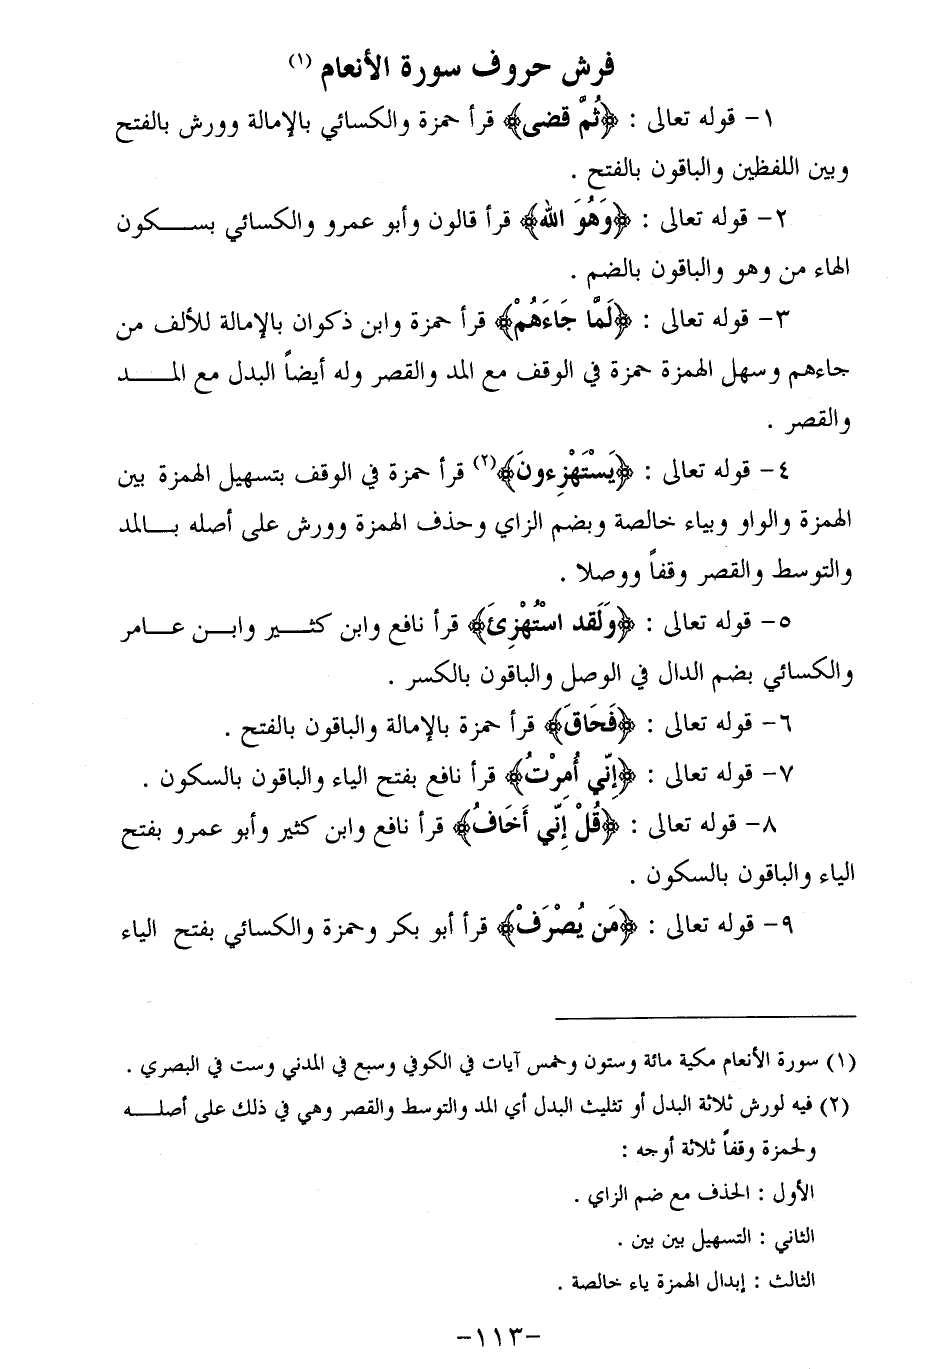 فرش حروف سورة الأنعام (١)
١- قوله تعالى : ﴿ثُمَّ قضى﴾ قرأ حمزة والكسائي بالإمالة وورش بالفتح
وبين اللفظين والباقون بالفتح .
٢- قوله تعالى : ﴿وَهُوَ الله﴾ قرأ قالون وأبو عمرو والكسائي بسكون
الهاء من وهو والباقون بالضم .
٣- قوله تعالى : ﴿لَمَّا جَاءَهُمْ﴾ قرأ حمزة وابن ذكوان بالإمالة للألف من
جاءهم وسهل الهمزة حمزة في الوقف مع المد والقصر وله أيضاً البدل مع المد
والقصر .
٤- قوله تعالى : ﴿يَسْتَهْزِءونَ﴾(٢) قرأ حمزة في الوقف بتسهيل الهمزة بين
الهمزة والواو وبياء خالصة وبضم الزاي وحذف الهمزة وورش على أصله بالمد
والتوسط والقصر وقفاً ووصلا .
٥- قوله تعالى : ﴿وَلَقد اسْتُهْزِئَ﴾ قرأ نافع وابن كثير وابن عامر
والكسائي بضم الدال في الوصل والباقون بالكسر .
٦- قوله تعالى : ﴿فَحَاقَ﴾ قرأ حمزة بالإمالة والباقون بالفتح .
٧- قوله تعالى : ﴿إنّي أُمِرْتُ﴾ قرأ نافع بفتح الياء والباقون بالسكون .
٨- قوله تعالى : ﴿قُلْ إنّي أَخَافُ﴾ قرأ نافع وابن كثير وأبو عمرو بفتح
الياء والباقون بالسكون .
٩- قوله تعالى : ﴿مَن يُصْرَفْ﴾ قرأ أبو بكر وحمزة والكسائي بفتح الياء
(١) سورة الأنعام مكية مائة وستون وخمس آيات في الكوفي وسبع في المدني وست في البصري .
(٢) فيه لورش ثلاثة البدل أو تثليث البدل أي المد والتوسط والقصر وهي في ذلك على أصله
ولحمزة وقفاً ثلاثة أوجه :
الأول : الحذف مع ضم الزاي .
الثاني : التسهيل بين بين .
الثالث : إبدال الهمزة ياء خالصة .
-١١٣-